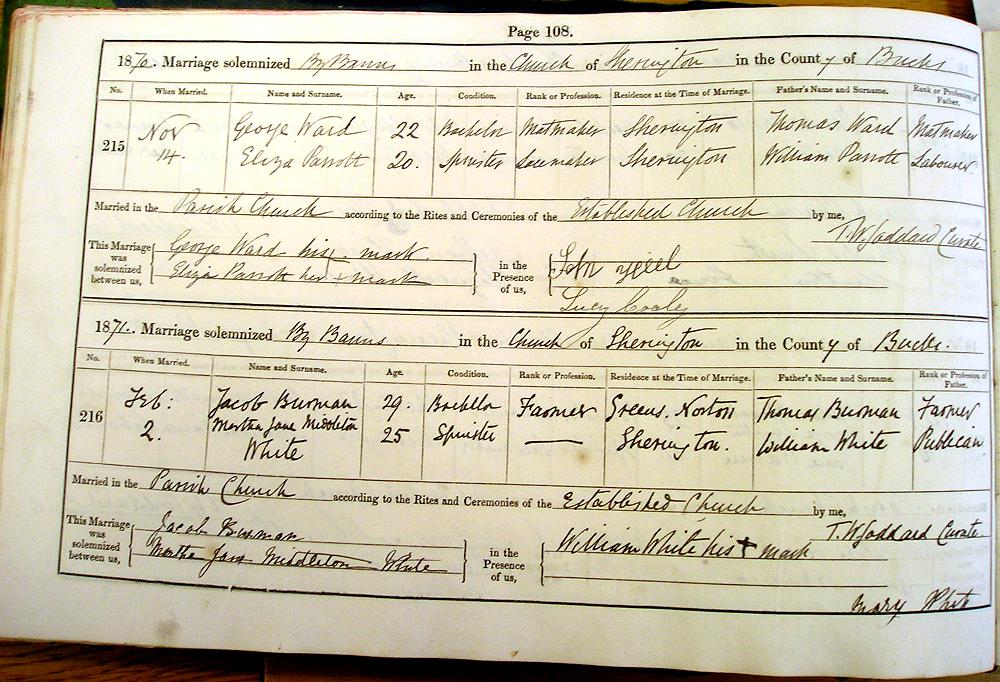 Page 108.
1870. Marriage solemnized By Banns in the Church of Sherington in the County of Bucks
No. When Married. Name and Surname. Age. Condition. Rank or Profession. Residence at the Time of Marriage. Father's Name and Surname. Rank or Profession of Father.
215 Nov 14. George Ward 22 Bachelor Matmaker Sherington Thomas Ward Matmaker
Eliza Parrott 20. Spinster Lacemaker Sherington William Parrott Labourer.
Married in the Parish Church according to the Rites and Ceremonies of the Established Church by me,
T. W. Goddard Curate
This Marriage was solemnized between us, George Ward his + mark in the Presence of us, John
Eliza Parrott her + mark
Lucy Cooley
1871. Marriage solemnized By Banns in the Church of Sherington in the County of Bucks.
No. When Married. Name and Surname. Age. Condition. Rank or Profession. Residence at the Time of Marriage. Father's Name and Surname. Rank or Profession of Father.
216 Feb: 2. Jacob Burman 29. Bachelor Farmer Greens Norton Thomas Burman Farmer
Martha Jane Middleton White 25 Spinster — Sherington. William White Publican
Married in the Parish Church according to the Rites and Ceremonies of the Established Church by me,
T. W. Goddard Curate.
This Marriage was solemnized between us, Jacob Burman in the Presence of us, William White his + mark
Martha Jane Middleton White
Mary White